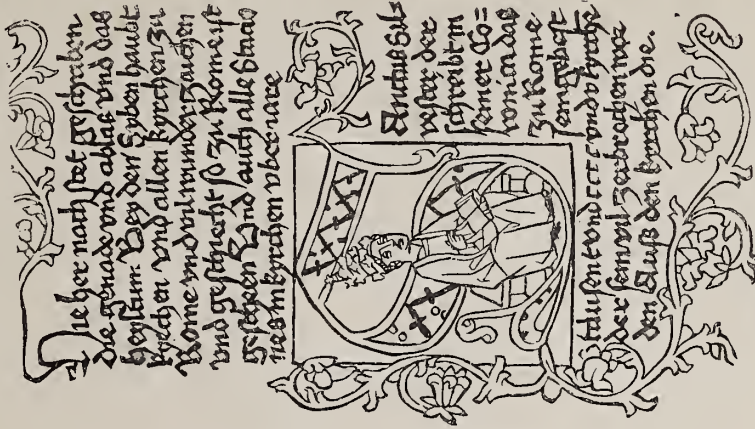 Hie her nach stet geschriben
die genade vnd ablas vnd das
heyltum. Bey den Syben haubt
kyrchen vnd allen kyrchen zu
Rome vnd vil wunderzaichen
vnd geschicht so zu Rome ist
gescheen Vnd auch alle Staao
nes in kyrchen vber Jare
Anctus Sil-
vester der
schreibt in
seiner Co=
ronica das
zu Rome
sein gebest
tausent vnd cccc vnd v kyrche
der sein vil zerbrochen wor
den Auß den kyrchen die.